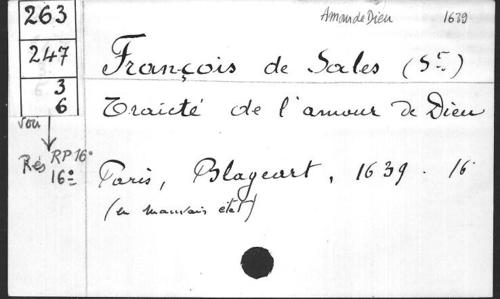 263
247
3
6
voir
Rés RP 16°
16°
Amour de Dieu 1639
François de Sales (St)
Traicté de l'amour de Dieu
Paris, Blageart, 1639. 16°
(en mauvais état)